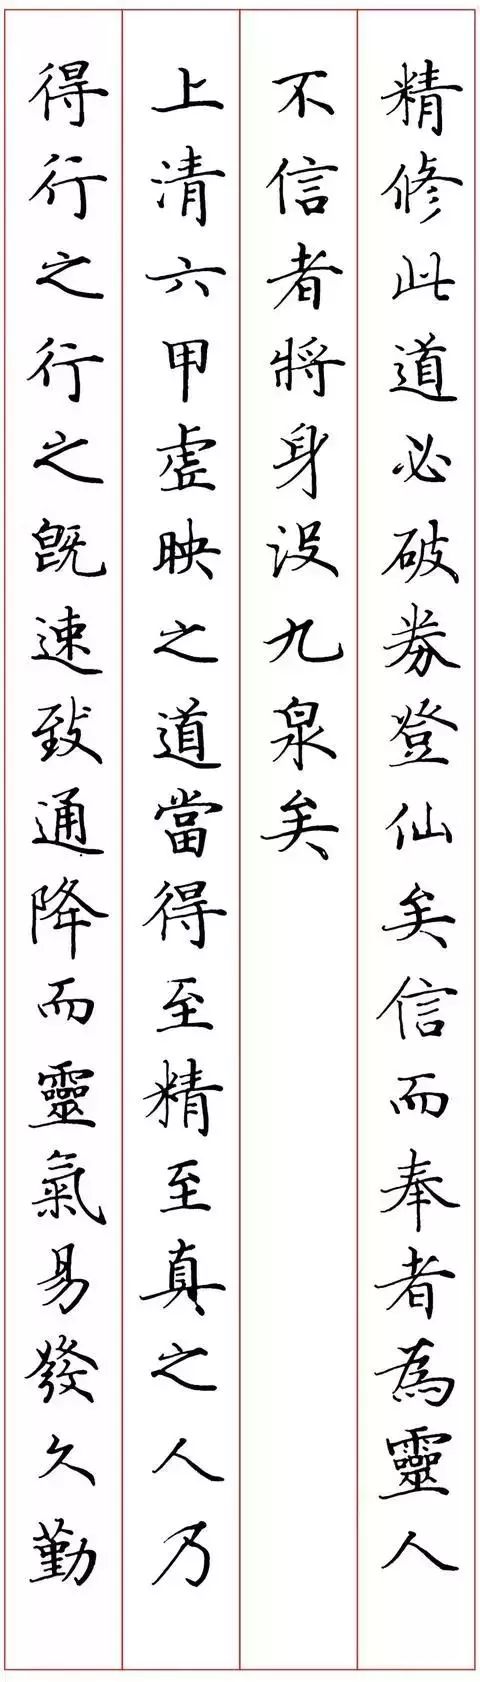 精修此道必破券登仙矣信而奉者為靈人
不信者將身没九泉矣
上清六甲虚映之道當得至精至真之人乃
得行之行之既速致通降而靈氣易發久勤